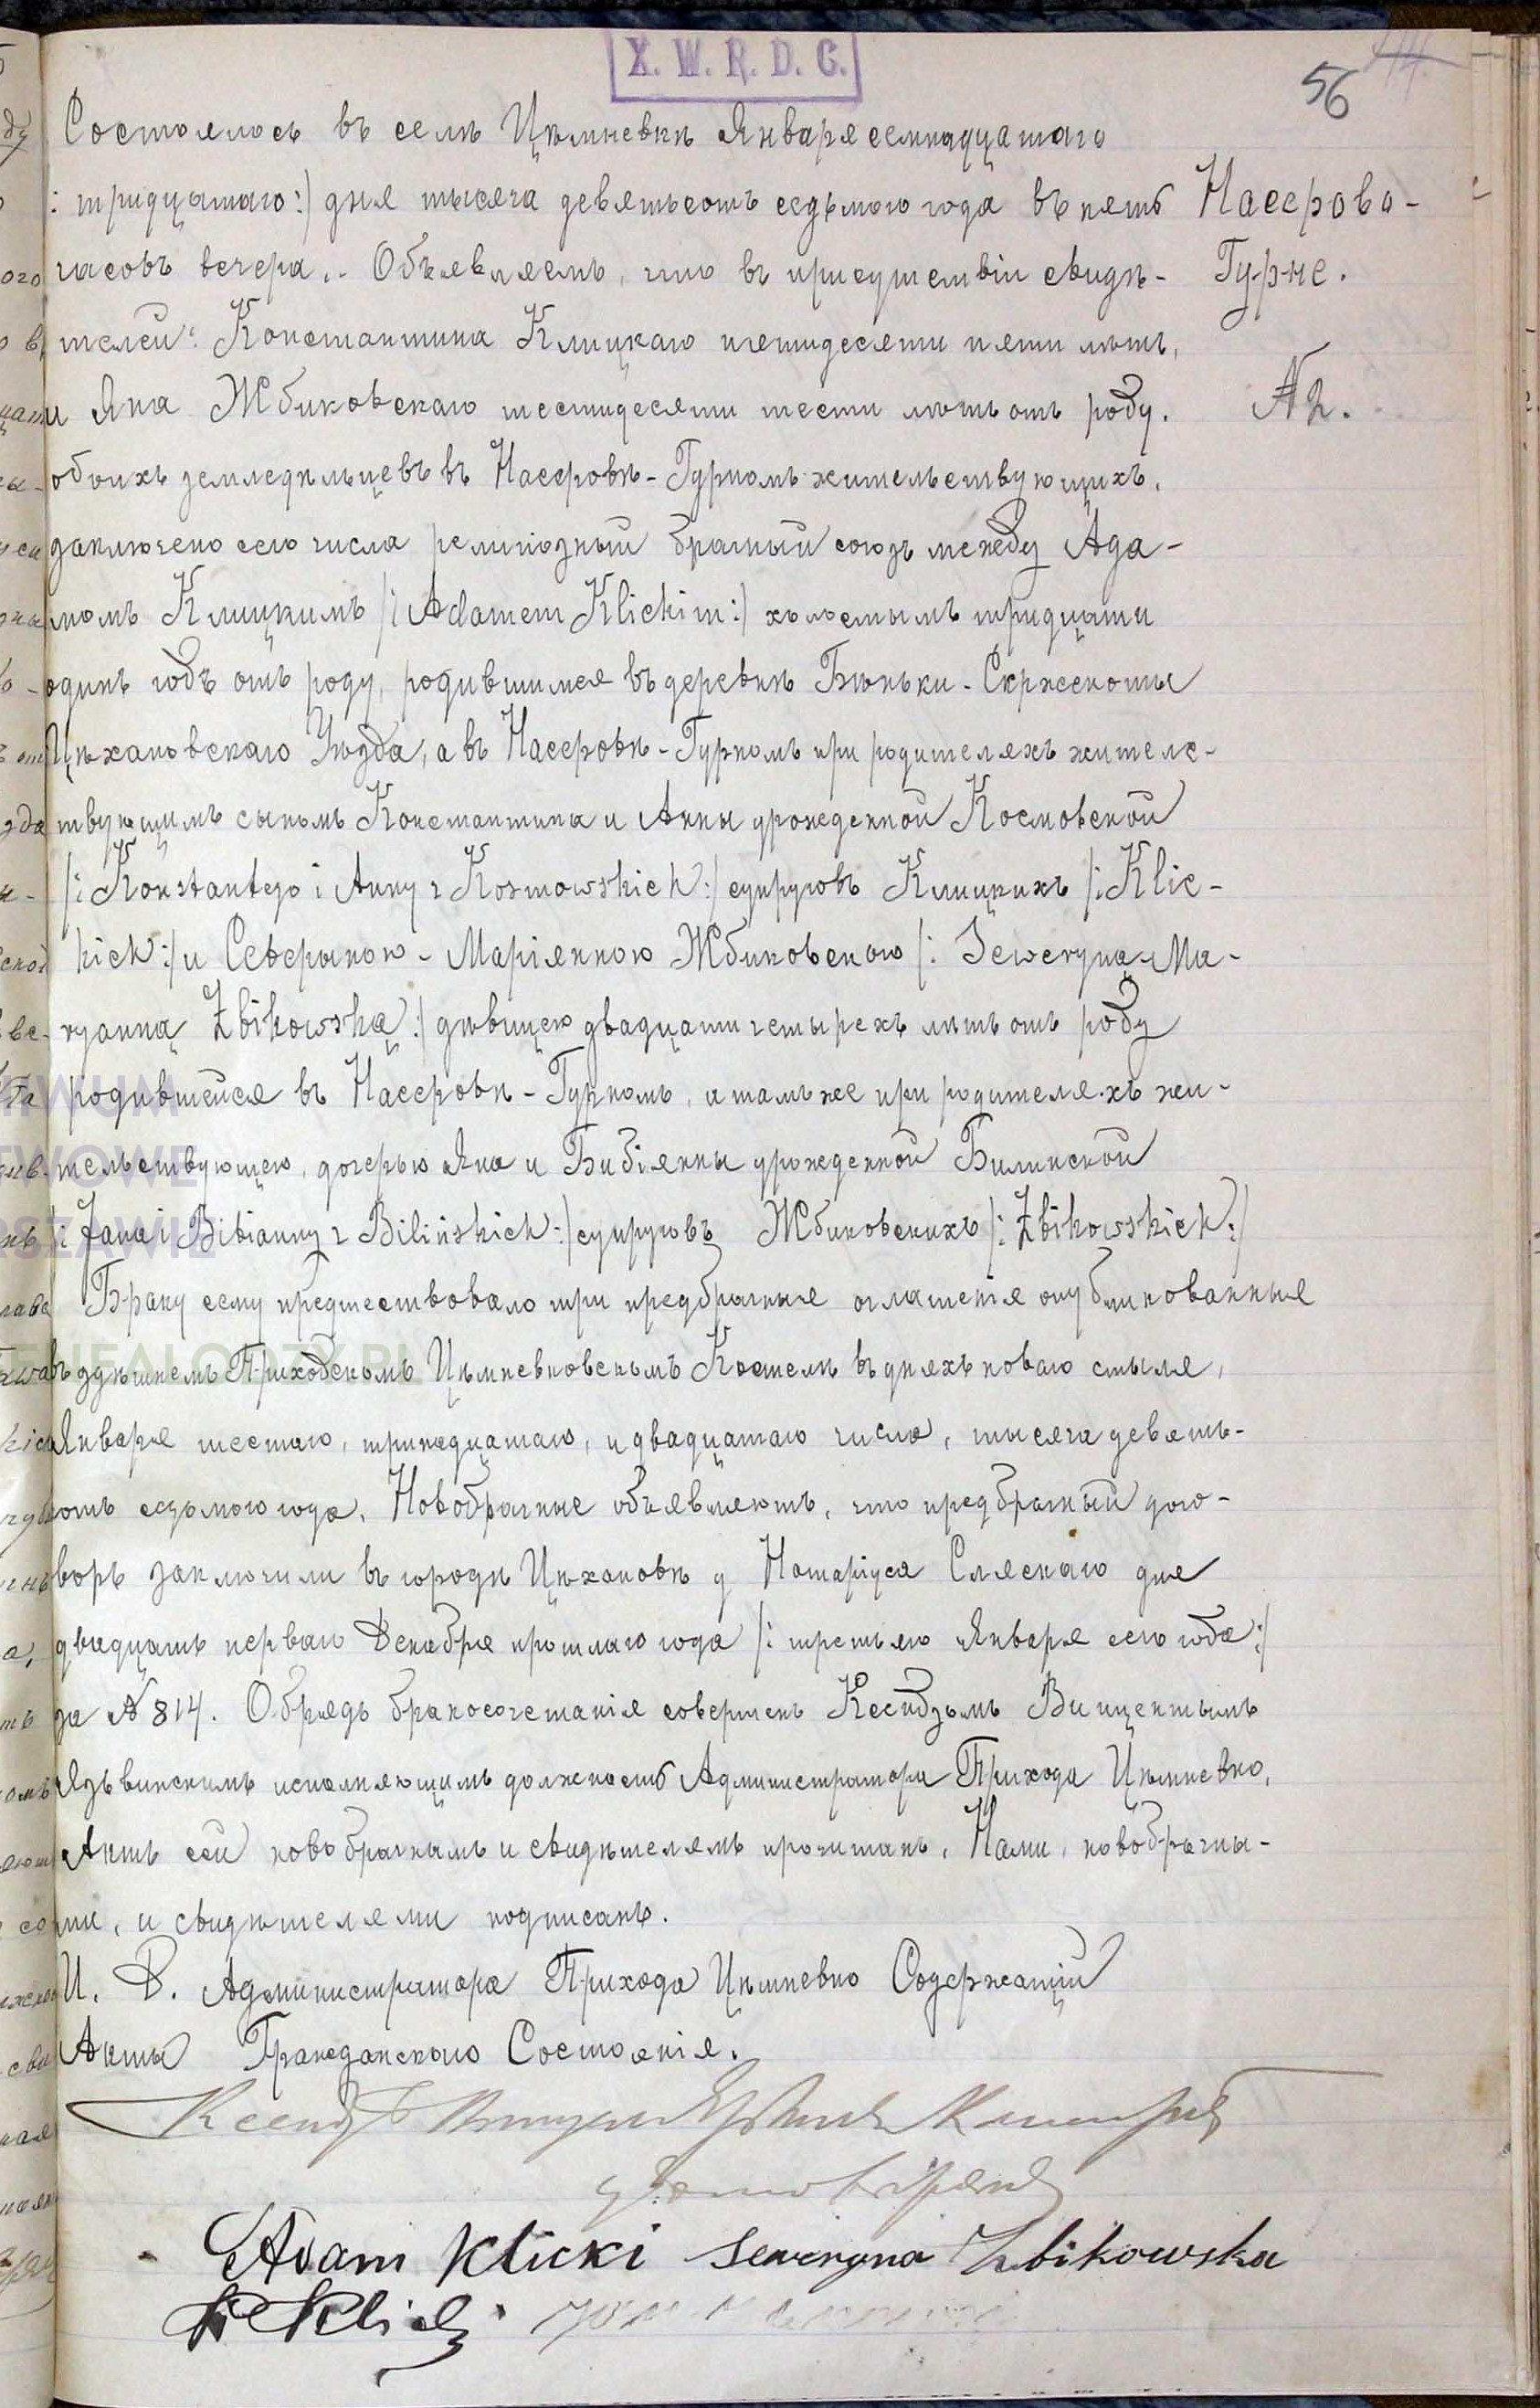 X. W. R. D. C.
56
Состоялось въ селѣ Цѣмневкѣ Января семнадцатаго
Насерово-
Гурне.
№ 2.
: тридцатаго:/ дня тысяча девятьсотъ седьмого года въ пять
часовъ вечера. Объявляемъ, что въ присутствіи свидѣ-
телей: Константина Клицкаго пятидесяти пяти лѣтъ,
и Яна Жбиковскаго шестидесяти шести лѣтъ отъ роду.
обоихъ земледѣльцевъ въ Насеровѣ-Гурномъ жительствующихъ.
заключено сего числа религіозный брачный союзъ между Ада-
момъ Клицкимъ /: Adamem Klickim:/ холостымъ тридцати
одинъ годъ отъ роду, родившимся въ деревнѣ Бѣньки-Скржекоты
Цѣхановскаго Уѣзда, а въ Насеровѣ-Гурномъ при родителяхъ жителс-
твующимъ сыномъ Константина и Анны урожденной Космовской
/: Konstantego i Anny z Kosmowskich:/ супруговъ Клицкихъ /: Klic-
kich:/ и Северыною-Маріянною Жбиковскою /: Seweryną-Ma-
ryanną Żbikowską:/ дѣвицею двадцати четырехъ лѣтъ отъ роду
родившейся въ Насеровѣ-Гурномъ, и тамъ же при родителяхъ жи-
тельствующею, дочерью Яна и Бибіянны урожденной Билинской
/: Jana i Bibianny z Bilińskich:/ супруговъ Жбиковскихъ /: Żbikowskich:/
Браку сему предшествовало три предбрачныя оглашенія опубликованныя
въ здѣшнемъ Приходскомъ Цѣмневковскомъ Костелѣ въ дняхъ новаго стыля,
Января шестаго, тринадцатаго, и двадцатаго числа, тысяча девять-
сотъ седьмого года. Новобрачные объявляютъ, что предбрачный дого-
воръ заключили въ городѣ Цѣхановѣ у Нотаріуса Сляскаго дня
двадцать перваго Декабря прошлаго года /: третьяго Января сего года:/
за № 814. Обрядъ бракосочетанія совершенъ Ксендзомъ Винцентымъ
Язвинскимъ исполняющимъ должность Администратора Прихода Цѣмневко.
Актъ сей новобрачнымъ и свидѣтелямъ прочитанъ. Нами, новобрачны-
ми, и свидѣтелями подписанъ.
И. Д. Администратора Прихода Цѣмневко Содержащій
Акты Гражданскаго Состоянія.
Ксендзъ
Adam Klicki Seweryna Żbikowska
K Klicki